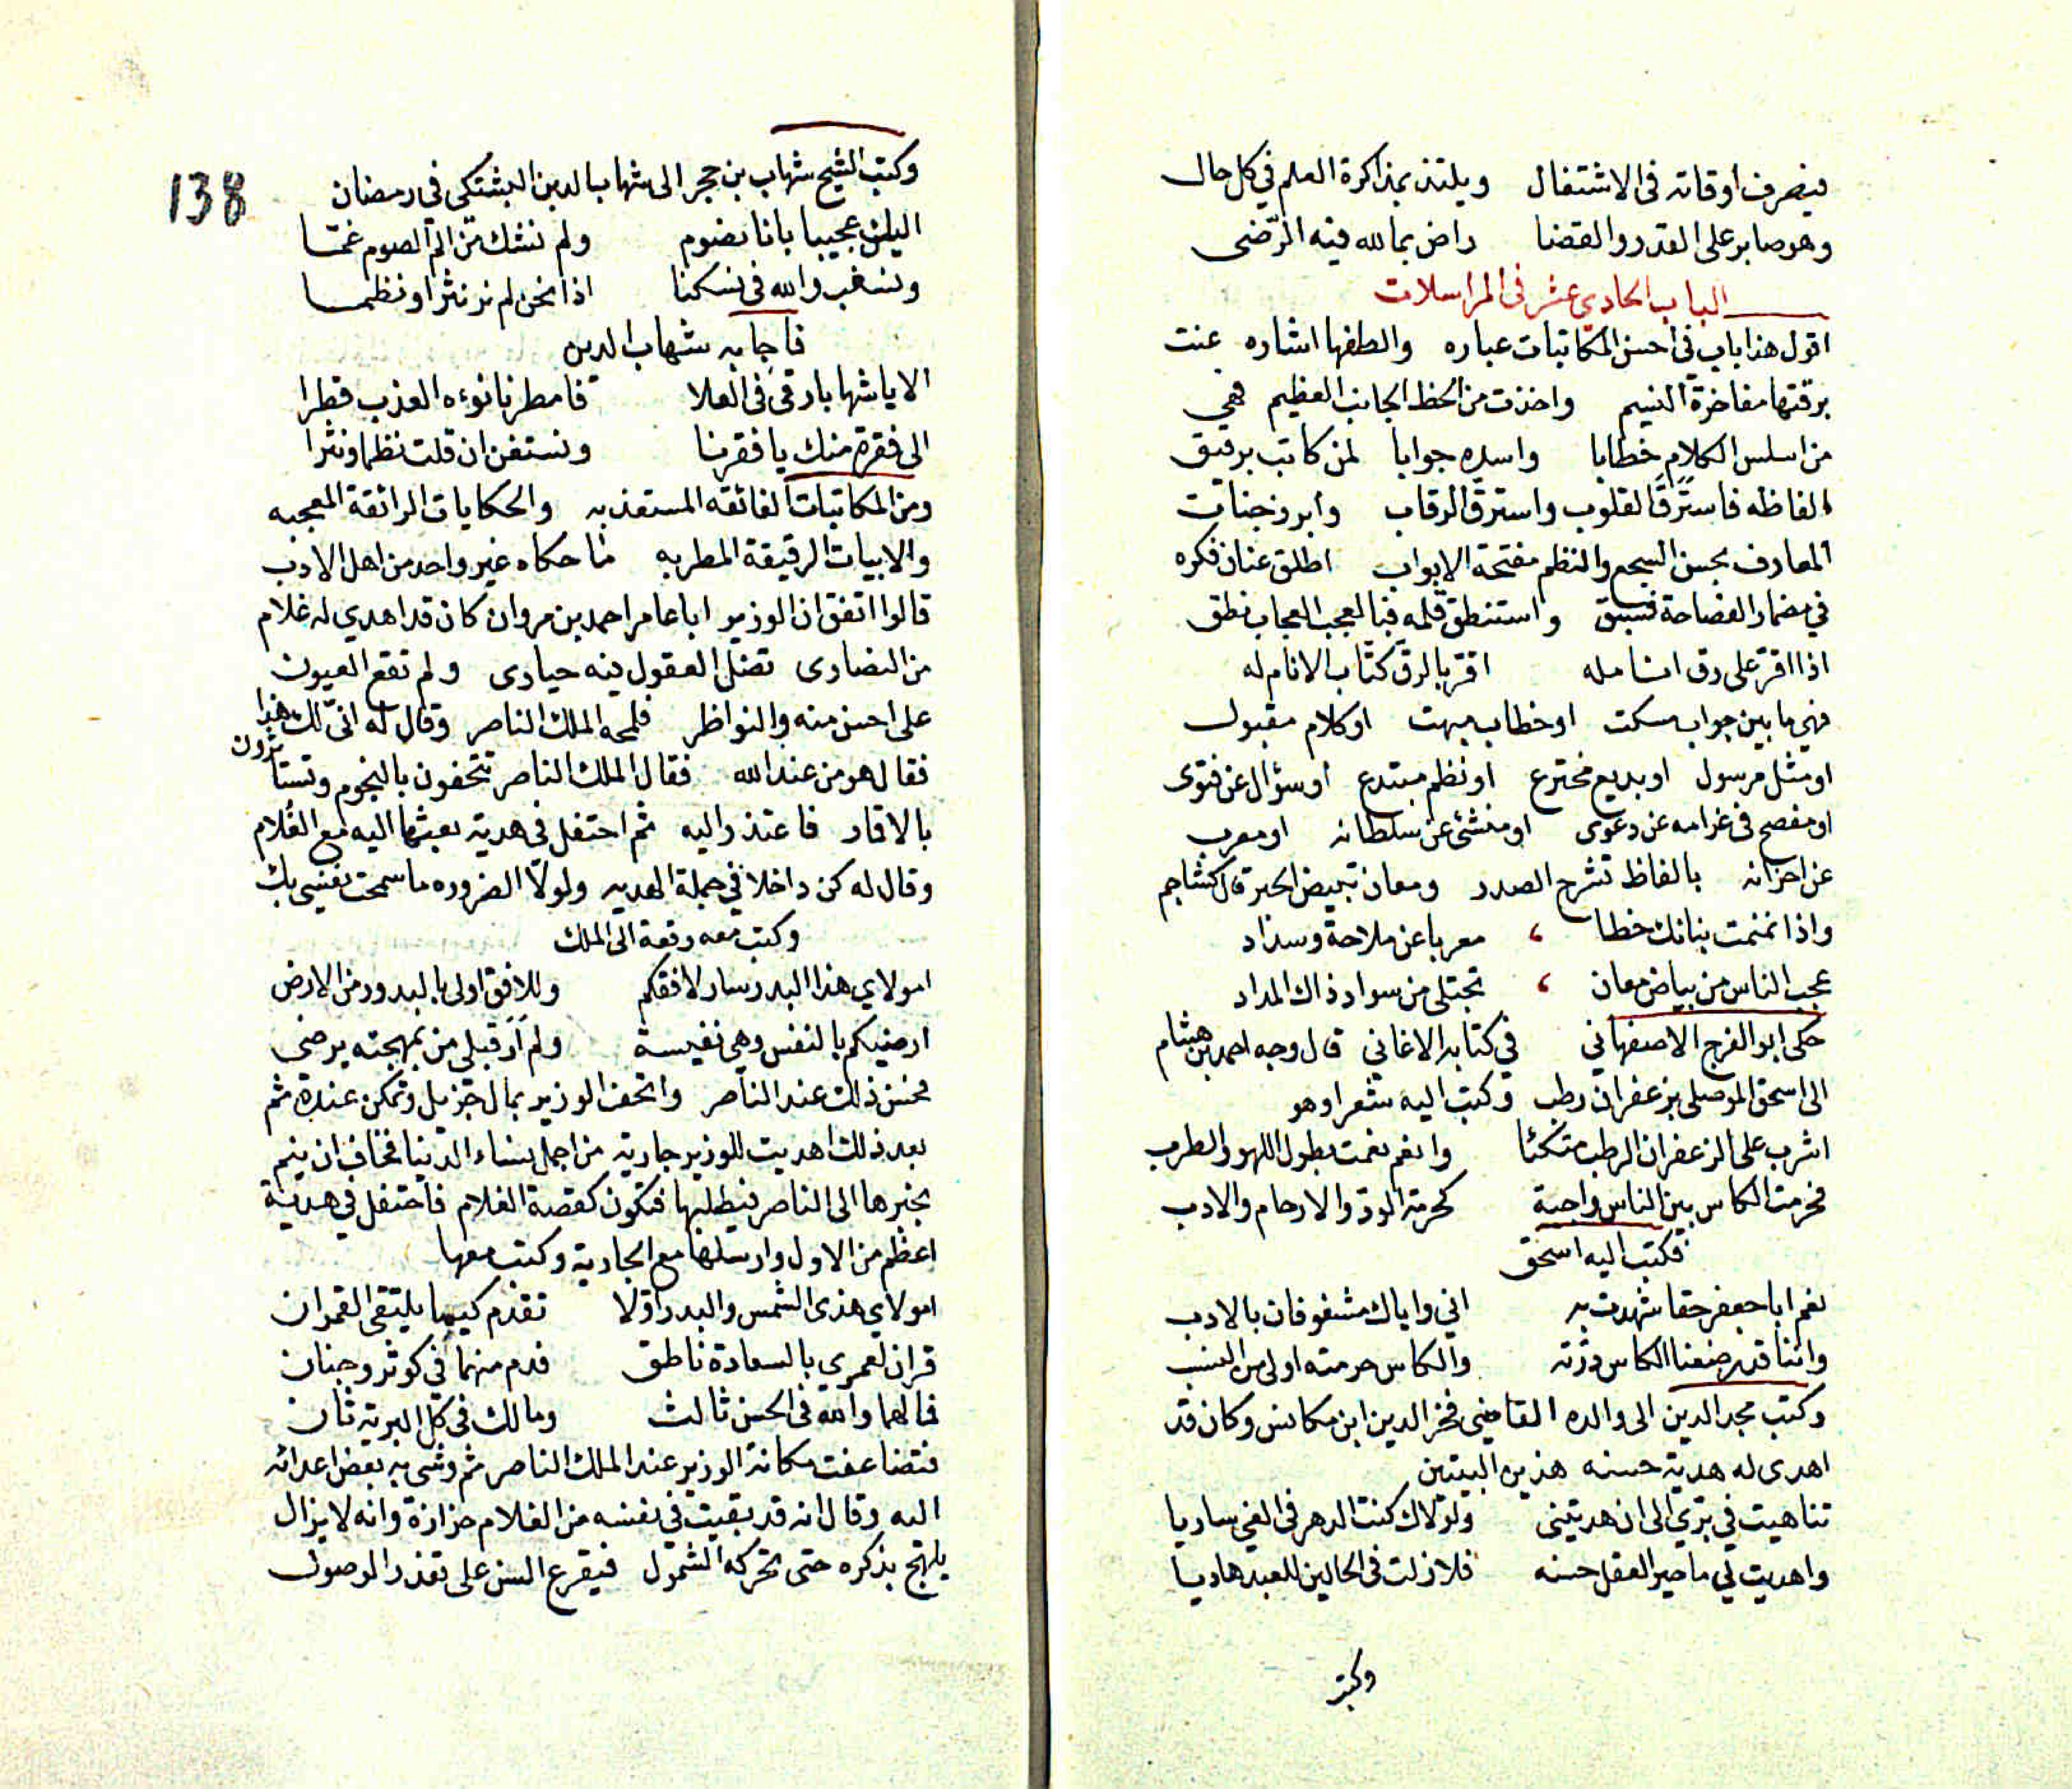 فيصرف اوقاته فى الاشتغال ويلتذ بمذاكرة العلم في كل حال
وهو صابر على القدر والقضا راض بما لله فيه الرّضى
الباب الحادي عشر فى المراسلات
اقول هذا باب في احسن المكاتبات عباره والطفها اشاره عنت
برقتها مفاخرة النسيم واخذت من الحظ الجانب العظيم فهي
من اسلس الكلام خطابا واسده جوابا لمن كاتب برقيق
الفاظه فاسترق القلوب واسترق الرقاب وابرز جنات
المعارف بحسن السجع والنظم مفتحة الابواب اطلق عنان فكره
في مضمار الفصاحة فسبق واستنطق قلمه فبالعجب العجاب نطق
اذا اقرّ على رق انامله اقرّ بالرقّ كتّاب الانام له
فهي ما بين جواب مسكت او خطاب مبهت او كلام مقبول
او مثل مرسول او بديع مخترع او نظم مبتدع او سؤال عن فتوى
او مفصح فى غرامه عن دعوى او منشئ عن سلطانه او معرب
عن احزانه بالفاظ تشرح الصدر ومعان تبيض الحبر قال كشاجم
واذا نمنمت بنانك خطا ، معربا عن ملاحة وسداد
عجب الناس من بياض معان ، تجتلى من سواد ذاك المداد
حكى ابو الفرج الاصفهاني في كتابه الاغاني قال وجه احمد بن هشام
الى اسحق الموصلي بزعفران رطب وكتب اليه شعرا وهو
اشرب على الزعفران الرطب متكئا وانعم نعمت بطول اللهو والطرب
فحرمت الكاس بين الناس واجبة كحرمة الود والارحام والادب
فكتب اليه اسحق
نعم ابا جعفر حقا شهدت به اني واياك مشغوفان بالادب
واننا قد رضعنا الكاس درّته والكاس حرمته اولى من النسب
وكتب مجد الدين الى والده القاضي فخر الدين ابن مكانس وكان قد
اهدى له هدية حسنه هذين البيتين
تناهيت في برّي الى ان هديتنى ولولاك كنت الدهر فى الغي ساريا
واهديت لي ما حير العقل حسنه فلا زلت فى الحالين للعبد هاديا
وكتب
138
وكتب الشيخ شهاب بن حجر الى شهاب الدين البشتكي فى رمضان
اليس عجيبا بانا نصوم ولم نشك من الم الصوم غمّا
ونسغب والله فى نسكنا اذا نحن لم نر نثرا ونظما
فاجابه شهاب الدين
الا يا شهابا رقى فى العلا فامطرنا نوءه العذب قطرا
الى فقرة منك يا فقرنا ونستغن ان قلت نظما ونثرا
ومن المكاتبات الفائقه المستعذبه والحكايات الرائقة المعجبه
والابيات الرقيقة المطربه ما حكاه غير واحد من اهل الادب
قالوا اتفق ان الوزير ابا عامر احمد بن مروان كان قد اهدي له غلام
من النصارى تضل العقول فيه حيارى ولم تقع العيون
على احسن منه والنواظر فلمحه الملك الناصر وقال له انىّ لك هذا
فقال هو من عند الله فقال الملك الناصر تتحفون بالنجوم وتستأثرون
بالاقمار فاعتذر اليه ثم احتفل فى هدية بعثها اليه مع الغلام
وقال له كن داخلا في جملة الهديه ولولا الضروره ما سمحت نفسي بك
وكتب معه رقعة الى الملك
امولاي هذا البدر سار لافقكم وللافق اولى بالبدور من الارض
ارضيكم بالنفس وهي نفيسة ولم ار قبلي من بمهجته يرضي
فحسن ذلك عند الناصر واتحف الوزير بمال جزيل وتمكن عنده ثم
بعد ذلك اهديت للوزير جارية من اجمل نساء الدنيا فخاف ان ينم
بخبرها الى الناصر فيطلبها فتكون كقصة الغلام فاحتفل في هدية
اعظم من الاول وارسلها مع الجارية وكتب معها
امولاي هذى الشمس والبدر اوّلا تقدم كيما يلتقى القمران
قران لعمري بالسعادة ناطق فدم منهما في كوثر وجنان
فمالهما والله فى الحسن ثالث ومالك فى كل البرية ثان
فتضاعفت مكانة الوزير عند الملك الناصر ثم وشى به بعض اعدائه
اليه وقال انه قد بقيت فى نفسه من الغلام حزازة وانه لا يزال
يلهج بذكره حتى تحركه الشمول فيقرع السن على تعذر الوصول